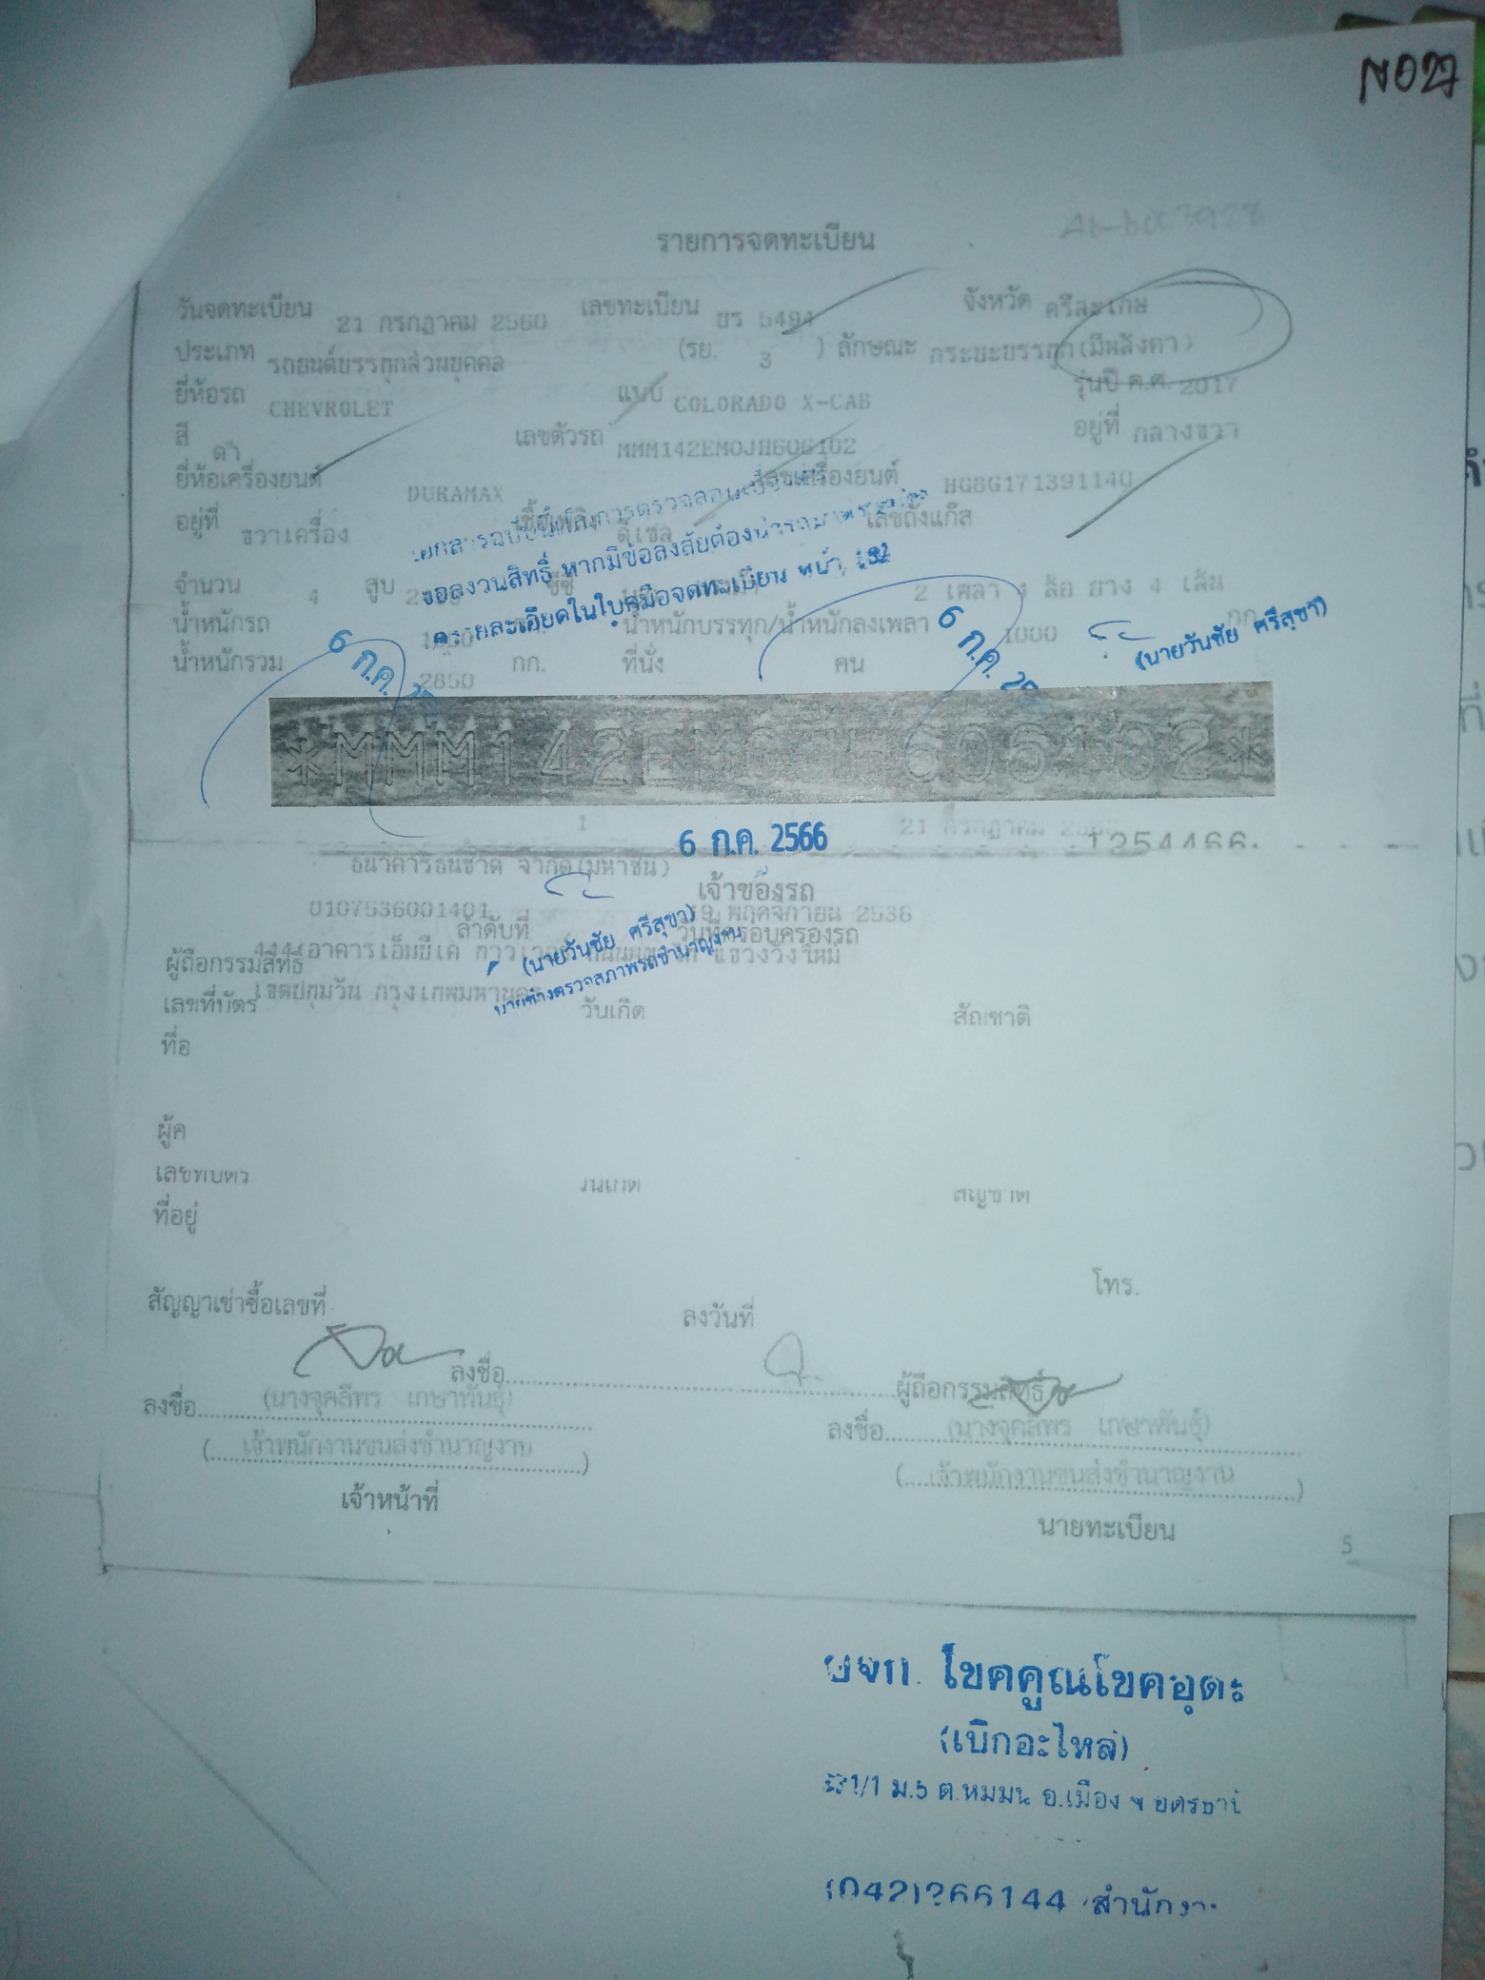 รายการจดทะเบียน
วันจดทะเบียน 21 กรกฎาคม 2560 เลขทะเบียน บร 5494 จังหวัด ศรีสะเกษ
ประเภท รถยนต์บรรทุกส่วนบุคคล (รย. 3 ) ลักษณะ กระบะบรรทุก(มีหลังคา)
ยี่ห้อรถ CHEVROLET แบบ COLORADO X-CAB รุ่นปี ค.ศ. 2017
สี ดำ เลขตัวรถ MMM142EM0JH606102 อยู่ที่ กลางขวา
ยี่ห้อเครื่องยนต์ DURAMAX เลขเครื่องยนต์ HG8G171391140
อยู่ที่ ขวาเครื่อง เชื้อเพลิง ดีเซล เลขถังแก๊ส
เอกสารฉบับนี้
ขอสงวนสิทธิ์ หากมีข้อสงสัยต้องนำรถมา
รายละเอียดในใบคู่มือจดทะเบียน หน้า
จำนวน 4 สูบ ซีซี 2 เพลา 4 ล้อ ยาง 4 เส้น
น้ำหนักรถ น้ำหนักบรรทุก/น้ำหนักลงเพลา 1000 กก.
น้ำหนักรวม 2850 กก. ที่นั่ง คน
6 ก.ค.
6 ก.ค.
(นายวันชัย ศรีสุขา)
*MMM142E 606102*
1 21 กรกฎาคม
6 ก.ค. 2566
ธนาคารธนชาต จำกัด(มหาชน)
เจ้าของรถ
0107536001401 19 พฤศจิกายน 2536
ลำดับที่ วันที่ครอบครองรถ
444 อาคารเอ็มบีเค แขวงวังใหม่
ผู้ถือกรรมสิทธิ์
(นายวันชัย ศรีสุขา)
นายช่างตรวจสภาพรถชำนาญงาน
เขตปทุมวัน กรุงเทพมหานคร
เลขที่บัตร วันเกิด สัญชาติ
ที่อ
ผู้ค
เลขที่บัตร วันเกิด สัญชาติ
ที่อยู่
โทร.
สัญญาเช่าซื้อเลขที่ ลงวันที่
ลงชื่อ ผู้ถือกรรมสิทธิ์
ลงชื่อ (นางจุคลีพร เกษาพันธุ์)
(เจ้าพนักงานขนส่งชำนาญงาน)
เจ้าหน้าที่
ลงชื่อ (นางจุคลีพร เกษาพันธุ์)
(เจ้าพนักงานขนส่งชำนาญงาน)
นายทะเบียน
5
โชคคูณโชคอุดร
(เบิกอะไหล่)
ม.5 ต.หมูม่น อ.เมือง จ.อุดรธานี
(042)266144 สำนักงาน